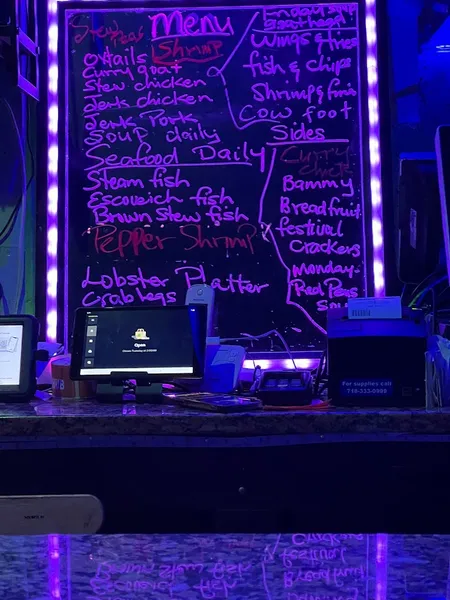 Menu
Stew
Peas
Shrimp
Oxtails
Curry goat
Stew chicken
Jerk chicken
Jerk Pork
Soup daily
Seafood Daily
Steam fish
Escoveich fish
Brown Stew fish
Pepper Shrimp
Lobster Platter
Crab legs
Wings & fries
fish & chips
Shrimp & fries
Cow foot
Sides
Curry
Bammy
Breadfruit
festival
Crackers
Monday-
Red Peas
Soup
Open
For supplies call